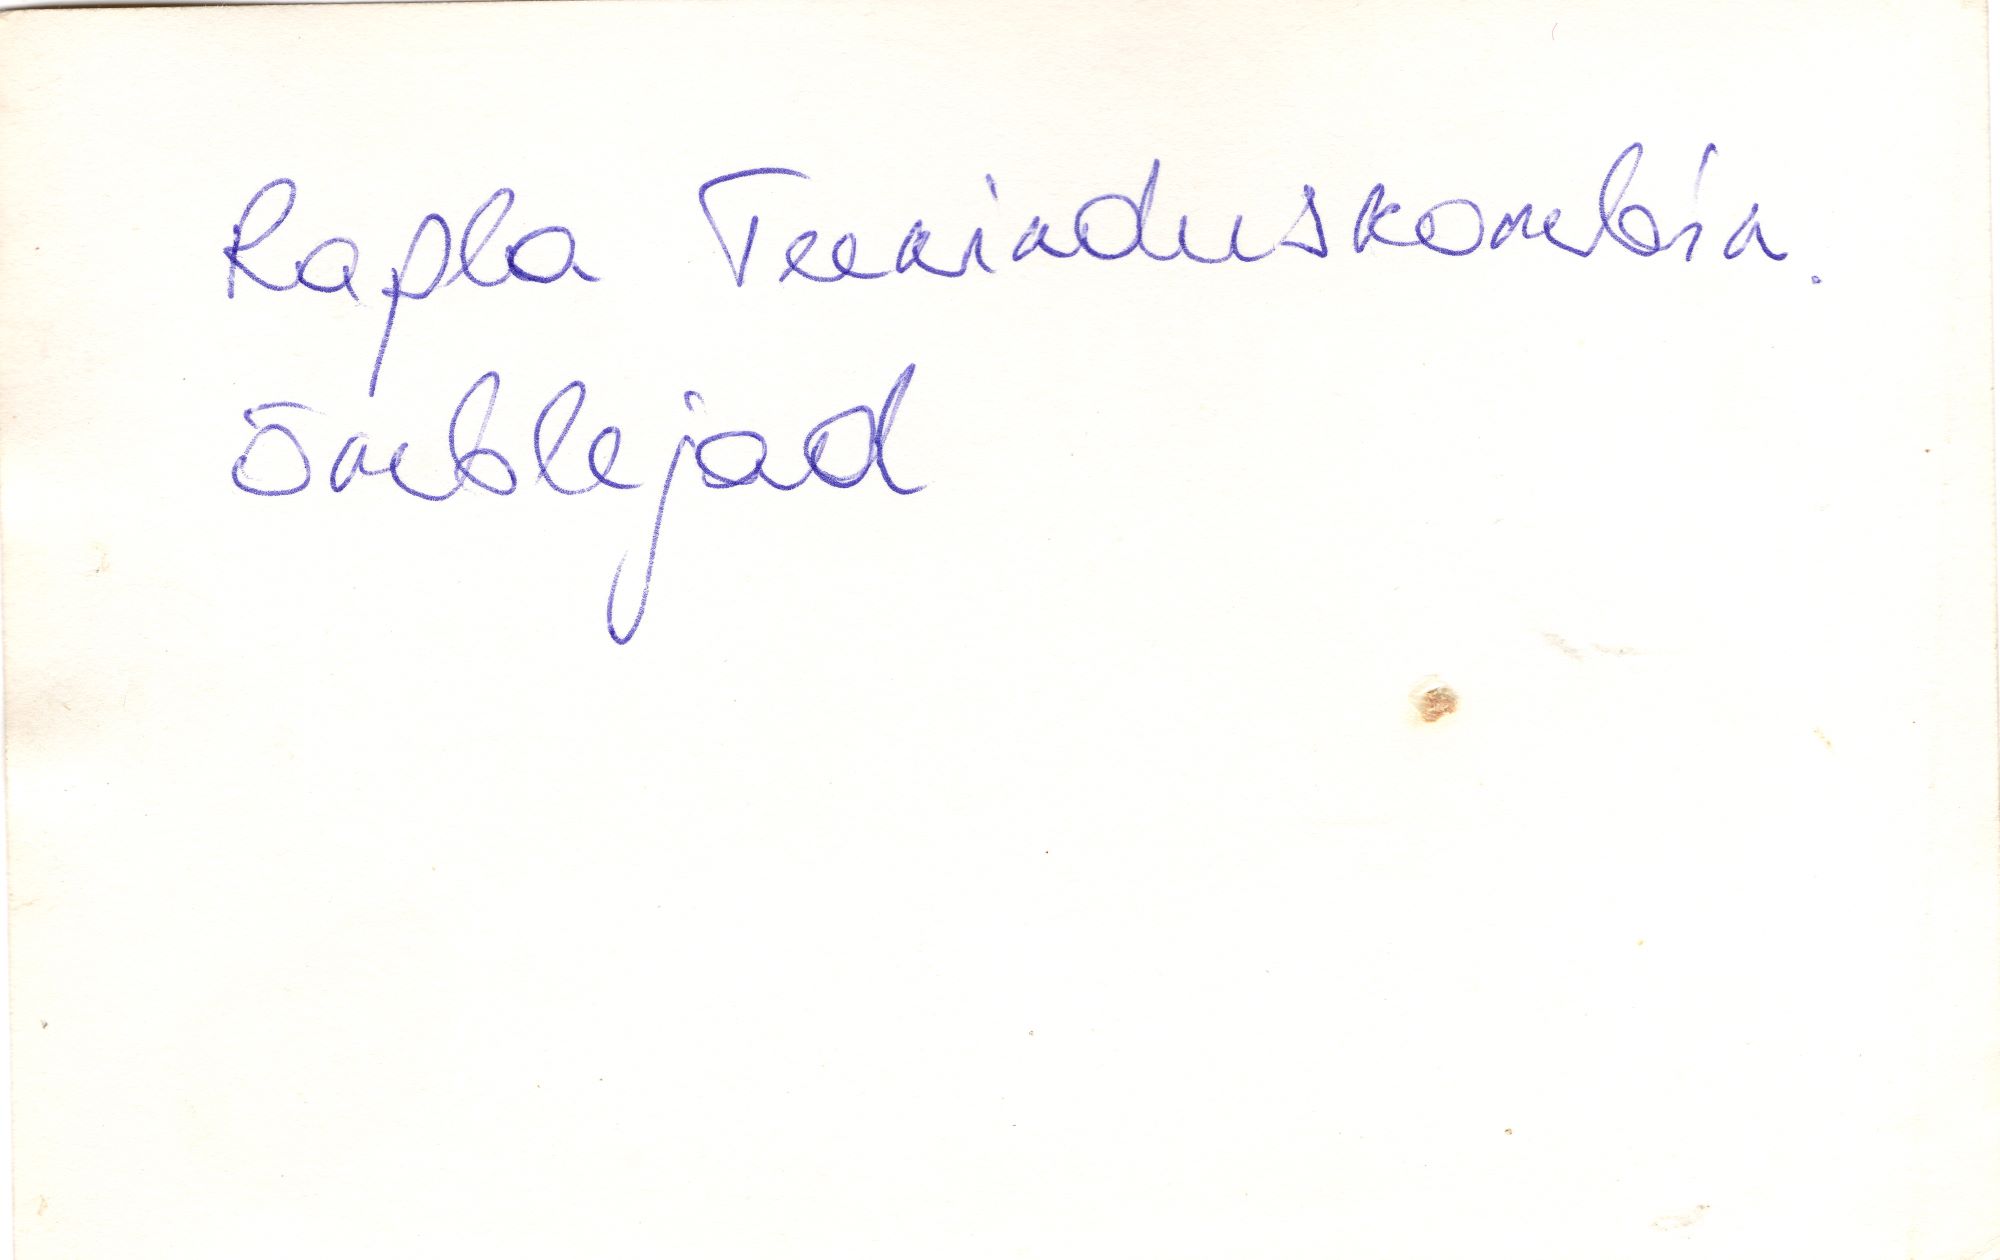 Rapla Teeninduskombin.
õmblejad